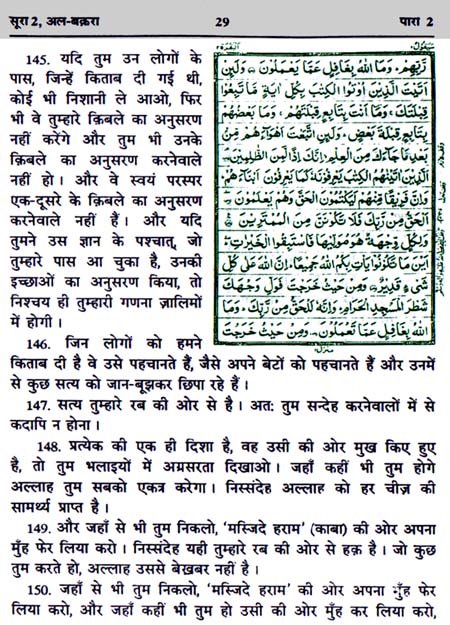 सूरा 2, अल-बक़रा 29 पारा 2
145. यदि तुम उन लोगों के
पास, जिन्हें किताब दी गई थी,
कोई भी निशानी ले आओ, फिर
भी वे तुम्हारे क़िबले का अनुसरण
नहीं करेंगे और तुम भी उनके
क़िबले का अनुसरण करनेवाले
नहीं हो। और वे स्वयं परस्पर
एक-दूसरे के क़िबले का अनुसरण
करनेवाले नहीं हैं। और यदि
तुमने उस ज्ञान के पश्चात्, जो
तुम्हारे पास आ चुका है, उनकी
इच्छाओं का अनुसरण किया, तो
निश्चय ही तुम्हारी गणना ज़ालिमों
में होगी।
رَّبِّهِمْ ۗ وَمَا اللّٰهُ بِغَافِلٍ عَمَّا يَعْمَلُوْنَ ۝ وَلَئِنْ
اَتَيْتَ الَّذِيْنَ اُوْتُوا الْكِتٰبَ بِكُلِّ اٰيَةٍ مَّا تَبِعُوْا
قِبْلَتَكَ ۚ وَمَآ اَنْتَ بِتَابِعٍ قِبْلَتَهُمْ ۚ وَمَا بَعْضُهُمْ
بِتَابِعٍ قِبْلَةَ بَعْضٍ ۭ وَلَئِنِ اتَّبَعْتَ اَهْوَآءَهُمْ مِّنْۢ
بَعْدِ مَا جَآءَكَ مِنَ الْعِلْمِ ۙ اِنَّكَ اِذًا لَّمِنَ الظّٰلِمِيْنَ ۝
اَلَّذِيْنَ اٰتَيْنٰهُمُ الْكِتٰبَ يَعْرِفُوْنَهٗ كَمَا يَعْرِفُوْنَ اَبْنَآءَهُمْ ۭ
وَاِنَّ فَرِيْقًا مِّنْهُمْ لَيَكْتُمُوْنَ الْحَقَّ وَهُمْ يَعْلَمُوْنَ ۝
اَلْحَقُّ مِنْ رَّبِّكَ فَلَا تَكُوْنَنَّ مِنَ الْمُمْتَرِيْنَ ۝
وَلِكُلٍّ وِّجْهَةٌ هُوَ مُوَلِّيْهَا فَاسْتَبِقُوا الْخَيْرٰتِ ۭ
اَيْنَ مَا تَكُوْنُوْا يَاْتِ بِكُمُ اللّٰهُ جَمِيْعًا ۭ اِنَّ اللّٰهَ عَلٰى كُلِّ
شَىْءٍ قَدِيْرٌ ۝ وَمِنْ حَيْثُ خَرَجْتَ فَوَلِّ وَجْهَكَ
شَطْرَ الْمَسْجِدِ الْحَرَامِ ۭ وَاِنَّهٗ لَلْحَقُّ مِنْ رَّبِّكَ ۭ وَمَا
اللّٰهُ بِغَافِلٍ عَمَّا تَعْمَلُوْنَ ۝ وَمِنْ حَيْثُ خَرَجْتَ
146. जिन लोगों को हमने
किताब दी है वे उसे पहचानते हैं, जैसे अपने बेटों को पहचानते हैं और उनमें
से कुछ सत्य को जान-बूझकर छिपा रहे हैं।
147. सत्य तुम्हारे रब की ओर से है। अतः तुम सन्देह करनेवालों में से
कदापि न होना।
148. प्रत्येक की एक ही दिशा है, वह उसी की ओर मुख किए हुए
है, तो तुम भलाइयों में अग्रसरता दिखाओ। जहाँ कहीं भी तुम होगे
अल्लाह तुम सबको एकत्र करेगा। निस्संदेह अल्लाह को हर चीज़ की
सामर्थ्य प्राप्त है।
149. और जहाँ से भी तुम निकलो, 'मस्जिदे हराम' (काबा) की ओर अपना
मुँह फेर लिया करो। निस्संदेह यही तुम्हारे रब की ओर से हक़ है। जो कुछ
तुम करते हो, अल्लाह उससे बेख़बर नहीं है।
150. जहाँ से भी तुम निकलो, 'मस्जिदे हराम' की ओर अपना मुँह फेर
लिया करो, और जहाँ कहीं भी तुम हो उसी की ओर मुँह कर लिया करो,